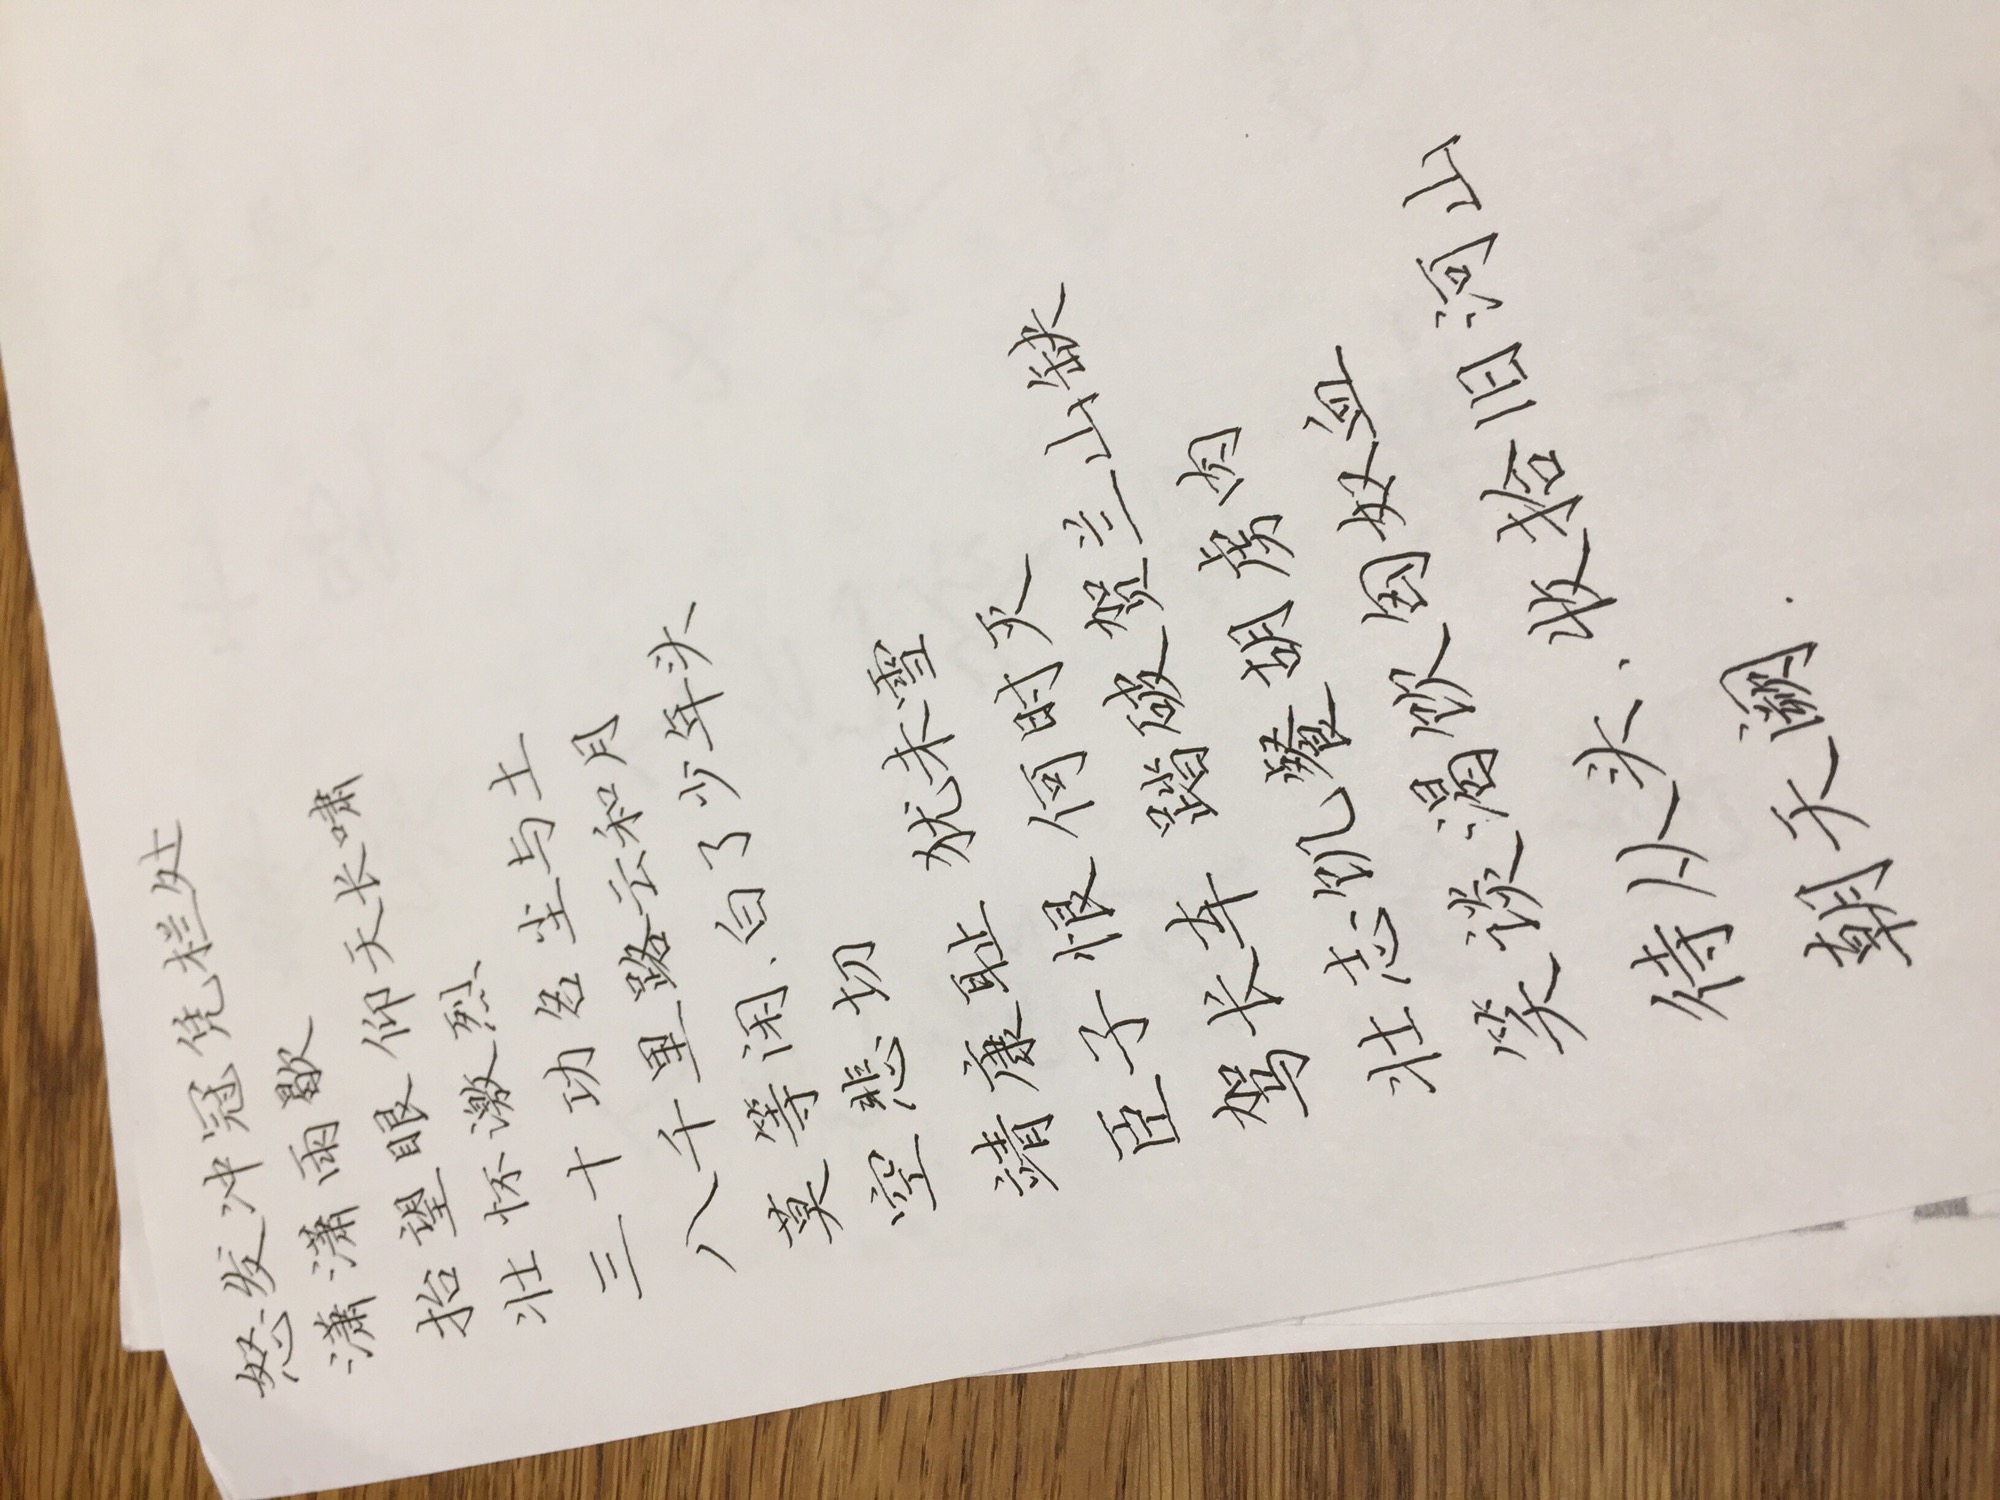 怒发冲冠凭栏处
潇潇雨歇
抬望眼仰天长啸
壮怀激烈
三十功名尘与土
八千里路云和月
莫等闲.白了少年头
空悲切
靖康耻 犹未雪
臣子恨何时灭
驾长车 踏破贺兰山缺
壮志饥餐胡虏肉
笑谈渴饮匈奴血
待从头.收拾旧河山
朝天阙.